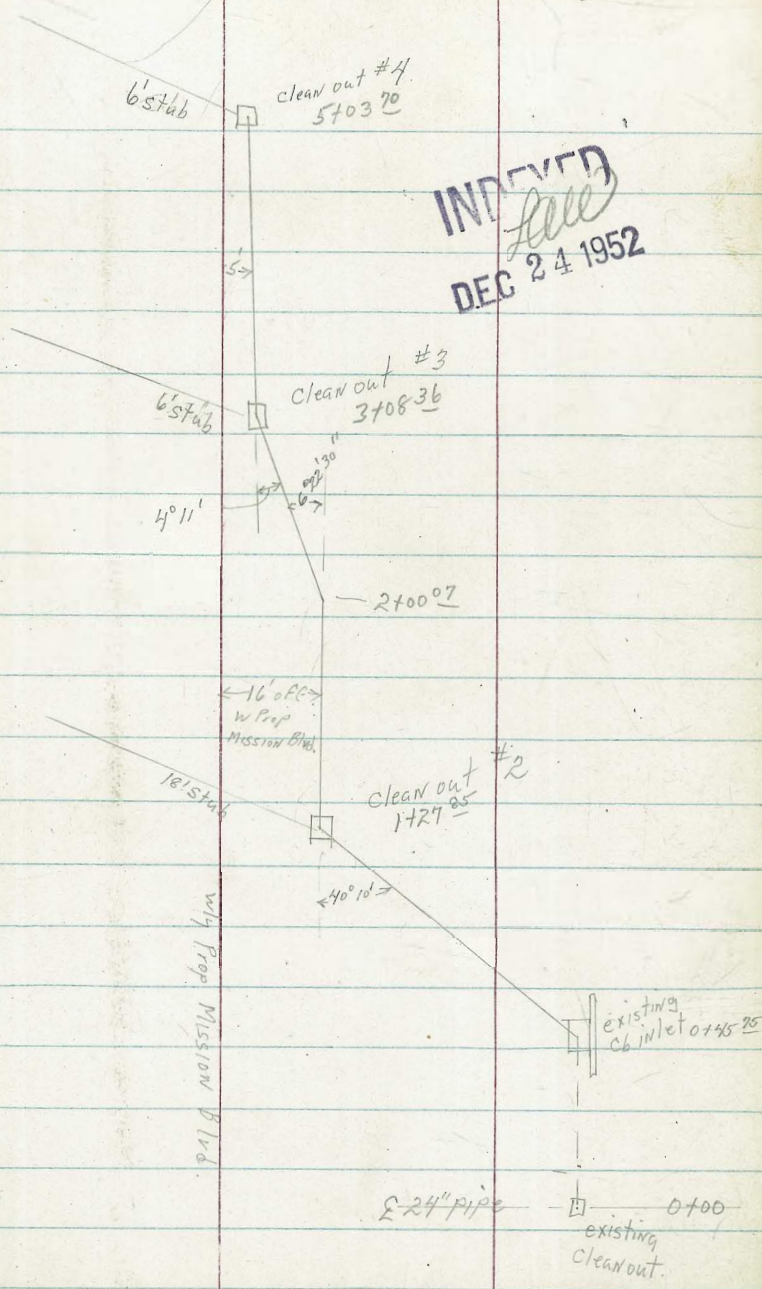 6' stub
Clean out #4
5+03 70
INDEXED
DEC 24 1952
5'
Clean out #3
3+08 36
6' stub
6° 22' 30"
4° 11'
2+00 07
16' off
W Prop
Mission Blvd.
#2
Clean out
1+27 85
18' stub
40° 10'
Wly Prop. Mission Blvd.
existing
Cb inlet 0+45 75
℄ 24" pipe
0+00
existing
Cleanout.